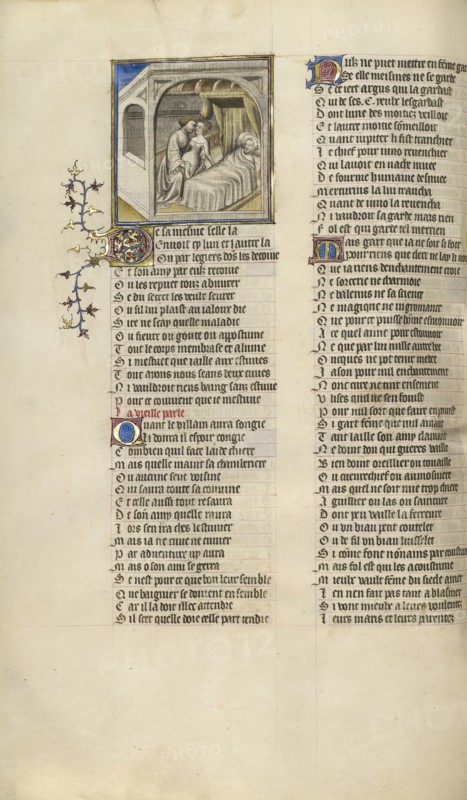 De la mesme selle la
Envoit cy lun et lautre la
Ou par legiers dōs les decoive
Et son amy par eulx recoive
Ou les repute tous adurer
Se du secret les veult
Ou sil lui plaist au ialoux die
Sire ne scay quelle maladie
Ou fievre ou goute ou apostume
Tout le corps membrase et alume
Si mestuet que iaille aux estuves
Tout aions nous ceans deux cuves
Ni vauldroit riens baing sans estuve
Pour ce couvient que ie mestuve
La vieille parle
Quant le villain aura songie
Li donra il espoir congie
Combien quil face laide chiere
Mais quelle maint sa chamberiere
Ou aucune sent voisine
Qui saura toute sa couvine
Et celle aussi tout resaura
De son amy quelle raura
Lors sen ira ches lestuvier
Mais ia ne cuve ne cuvier
Par adventure ny aura
Mais o son ami se gerra
Se nest pour ce que bon leur semble
Que baignier se doivent ensemble
Car il la doit illec attendre
Sil scet quelle doie celle part tendre
Nulz ne puet mettre en fēme gar
Se elle mesmes ne se garde
Se cestert argus qui la gardast
Qui de ses .C. yeulx lesgardast
Dont lune des moitiez veilloit
Et lautre moitie sōmeilloit
Quant iupiter li fist tranchier
Le chief pour iuno revenchier
Qui lavoit en vache muee
De fourme humaine desnuee
Mercurius la lui trancha
Quant de iuno la revencha
Ni vaudroit sa garde mais rien
Fol est qui garde tel merrien
Mais gart que ia ne soit si sote
Pour riens que clerc ne lay li note
Que ia riens denchantement croie
Ne sorcerie ne charmoie
Ne balenus ne sa science
Ne magique ne nigromance
Que pour ce puisse hōme esmouvoir
A ce quel aime pour estouvoir
Ne que par lui mille autre hee
Oncques ne pot tenir medee
Iason pour nul enchantement
Nonc circe ne tint ensement
Ulixes quil ne sen fouist
Pour nul sort que faire en poist
Si gart fēme que nul amant
Tant laille son amy clamant
Ne doint don qui gueres vaille
Bien doint oreillier ou touaille
Ou cueuvrechief ou aumosniere
Mais quel ne soit mie trop chiere
Aguillier ou las ou sainture
Dont peu vaille la ferreure
Ou un biau petit coutelet
Ou de fil un biau luisselet
Si cōme font nōnains par coustum
Mais fol est qui les acoustume
Mieulx vault fēme du siecle amer
Len nen fait pas tant a blasmer
Si vont mieulx a leurs voulentez
Leurs maris et leurs parentez